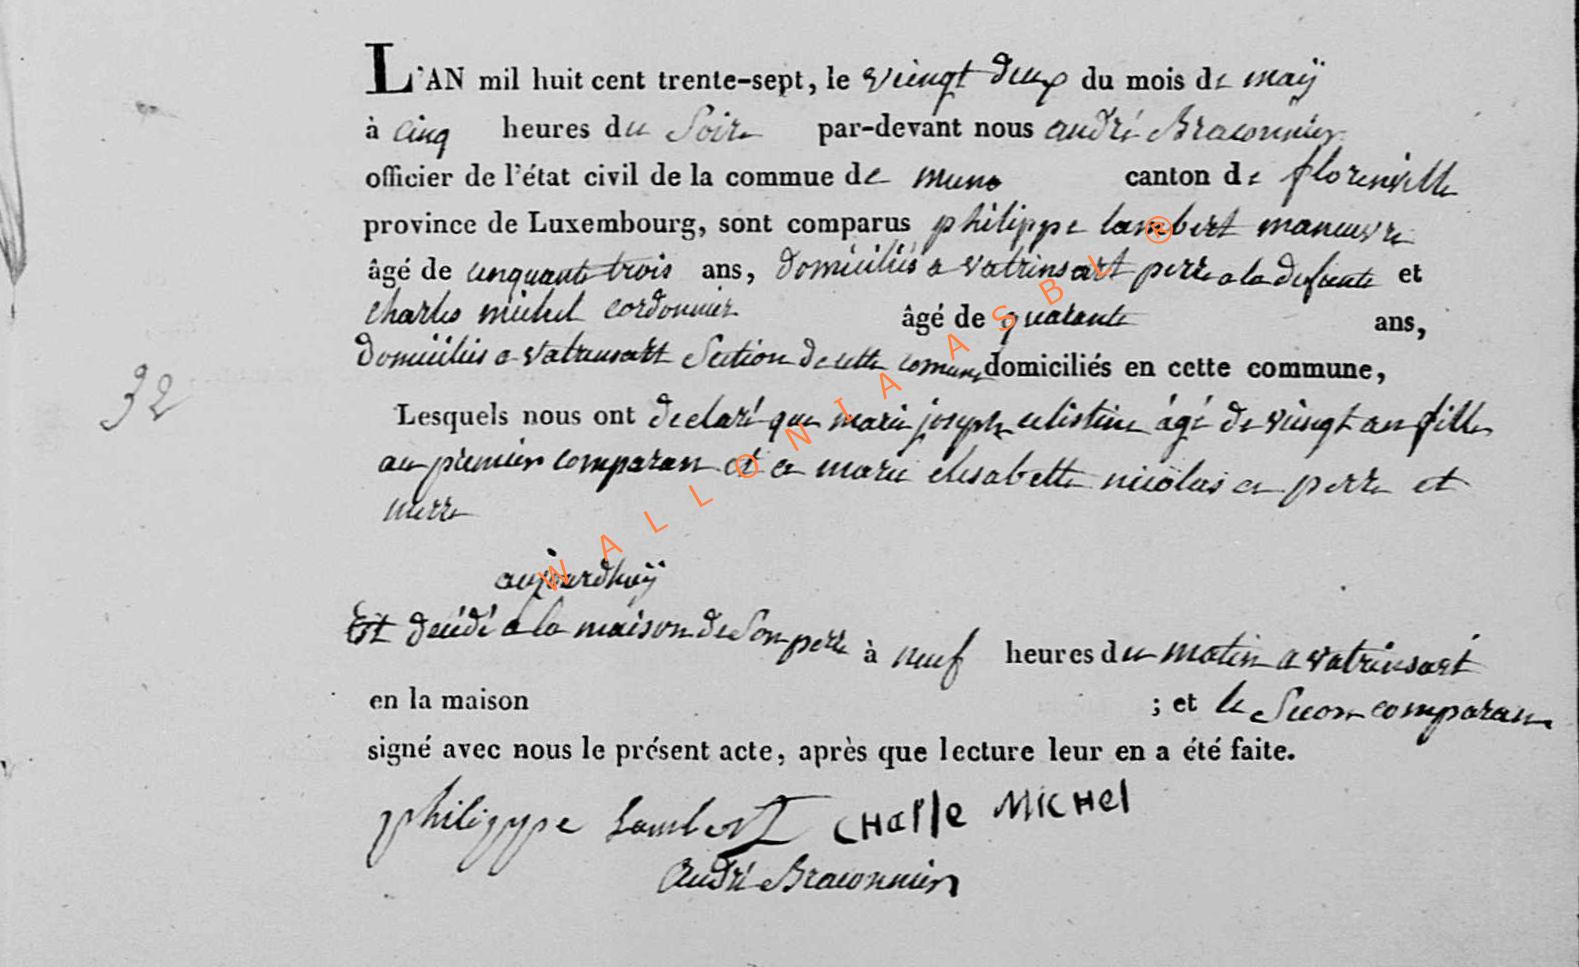 L'AN mil huit cent trente-sept, le viengt deux du mois de maÿ
à cinq heures du Soire par-devant nous andré Braconnier
officier de l'état civil de la commue de muno canton de florenville
province de Luxembourg, sont comparus philippe lambert manuvre
âgé de cinquante trois ans, domiciliés a vatrinsart perre a la defunte et
charles michel cordonnier âgé de quarante ans,
domiciliés a vatrinsart Section de cette comune domiciliés en cette commune,
32
Lesquels nous ont declaré que marie joseph celistine ágé de viengt an fille
au premier comparan et a marie elisabette nicolas ce perre et
merre
aujourdhuÿ
Est decédé a la maison de Son perre à neuf heures du matin a vatrinsart
en la maison ; et le Secon comparan
signé avec nous le présent acte, après que lecture leur en a été faite.
philippe Lambert CHArle MICHel
andré Braconnier
WALLONIA ASBL ®